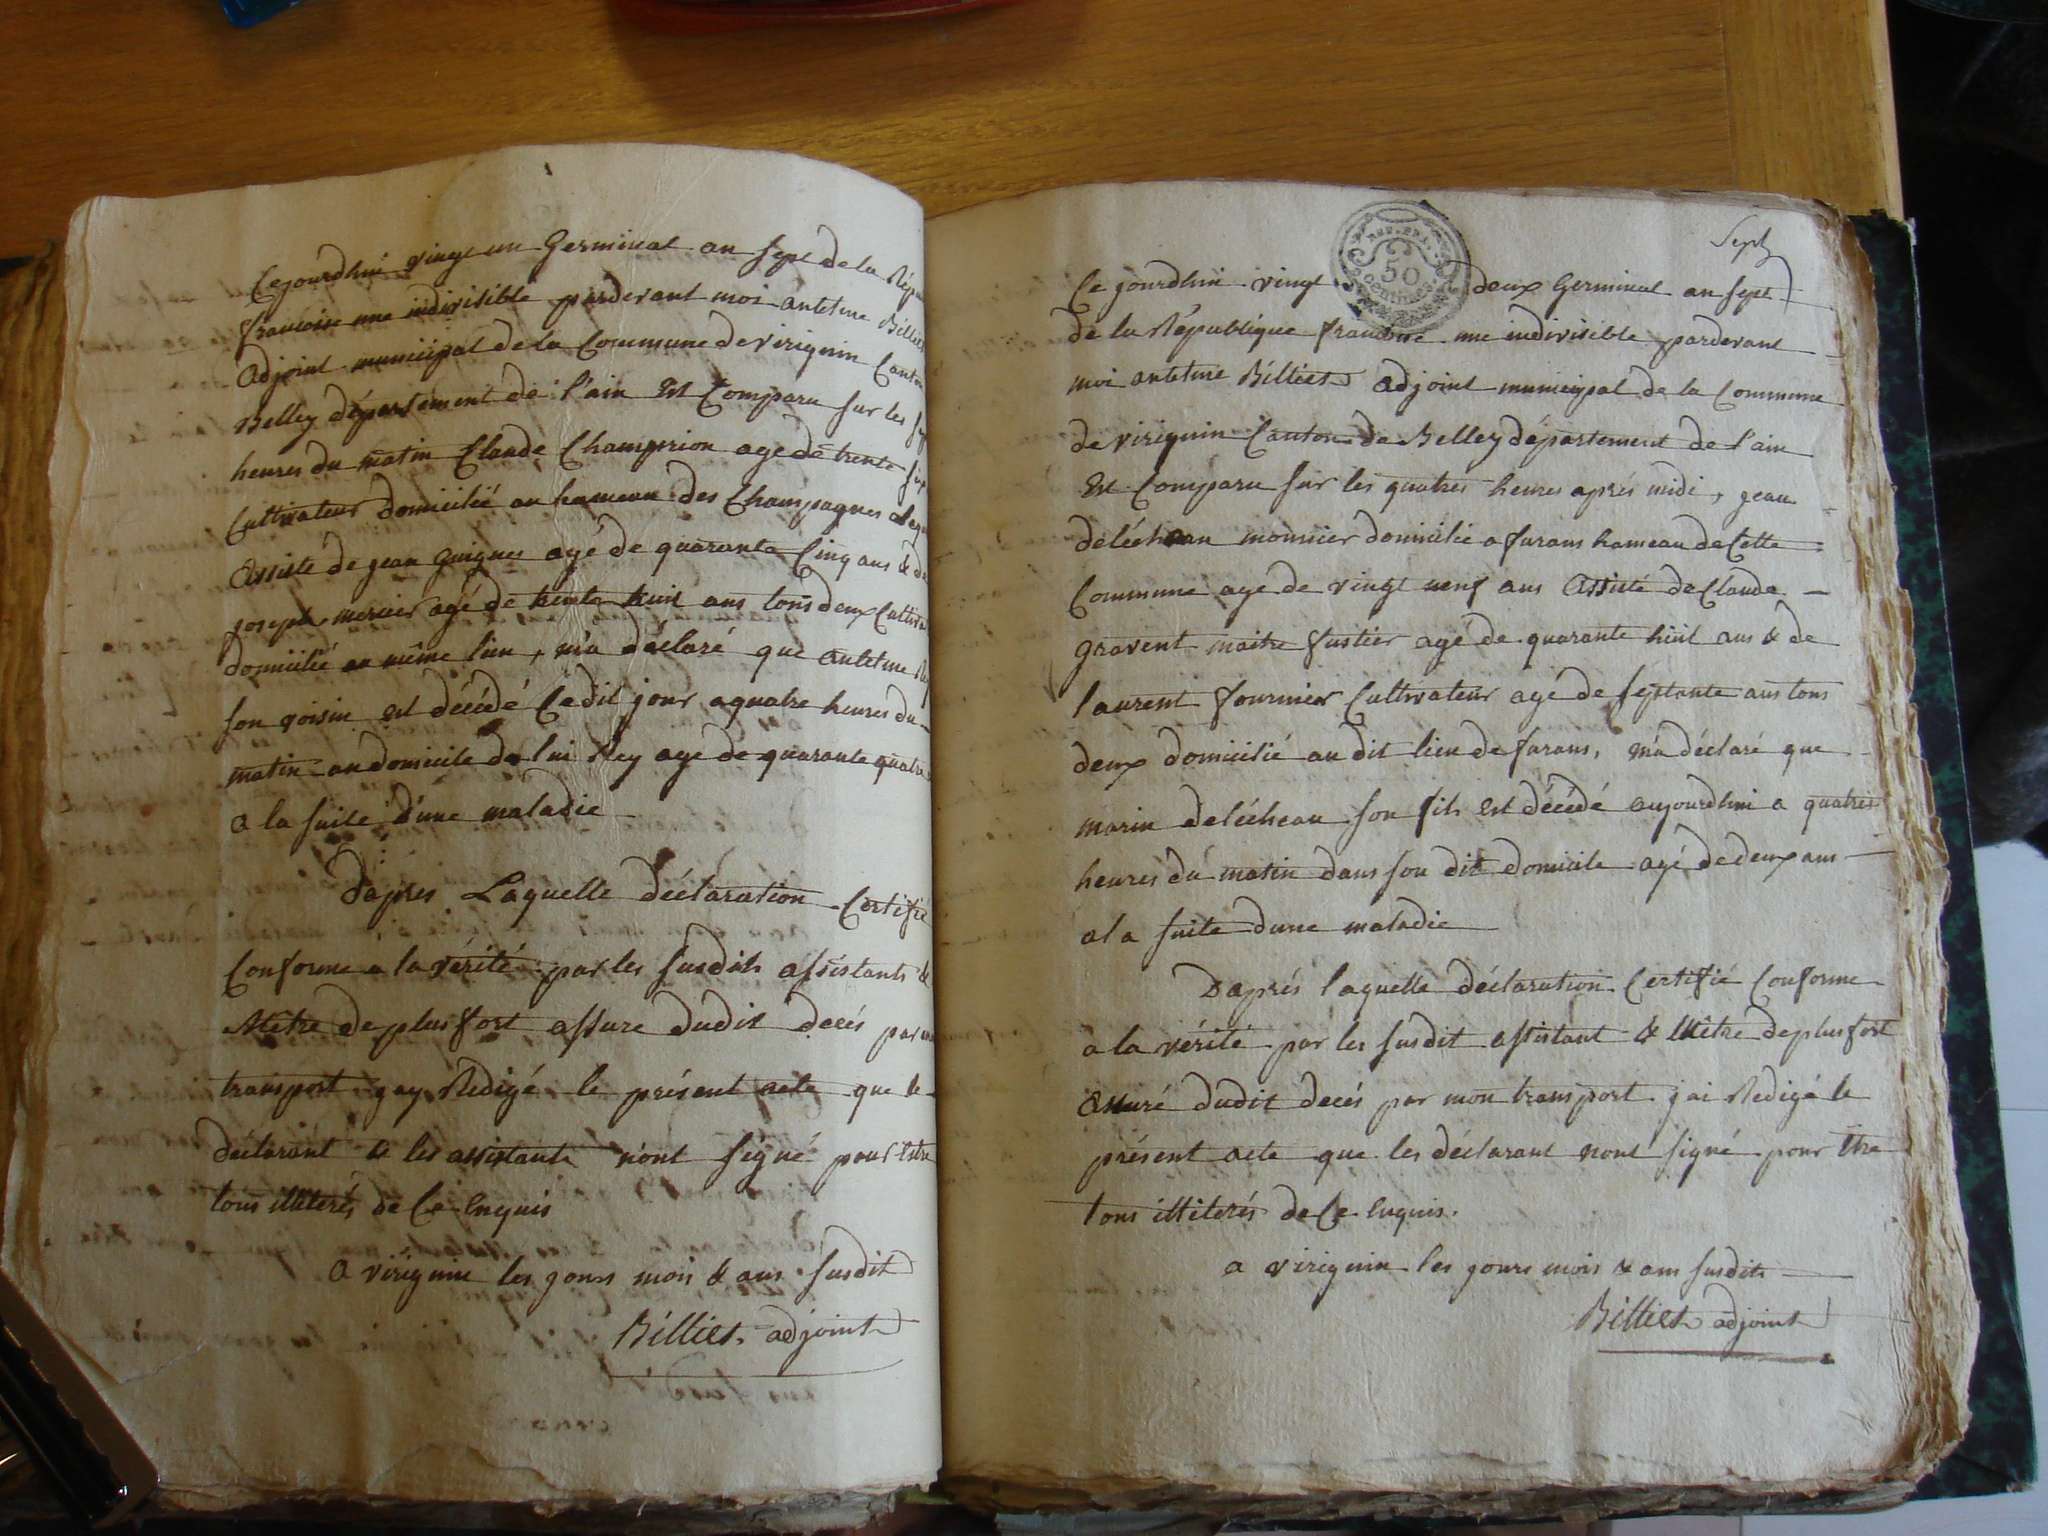 Cejourdhui vingt un Germinal an sept de la Répu
francoise une indivisible pardevant moi antelme Billiet
adjoint municipal de la Commune de virignin Canton
Belley département de l'ain Est Comparu sur les sept
heures du matin Claude Champrion age de trente six
Cultivateur domicilié au hameau des Champagnes
Assisté de jean guignes agé de quarante Cinq ans & de
joseph mercier agé de trente huit ans tous deux Cultiva
domicilié au même lieu, m'a déclaré que antelme Rey
son voisin est décédé Cedit jour a quatre heures du
matin au domicile de lui Rey age de quarante quatre
a la suite d'une maladie
D'apres Laquelle déclaration Certifié
Conforme a la vérité par les susdits assistants &
Mêtre de plus fort assure dudit decés par mon
transport j'ay Redigé le présent acte que le
déclarant & les assistants n'ont signé pour être
tous illiterés de Ce Enquis
a virignin les jours mois & ans susdit
Billiet adjoint
Sept
REP. FRA.
50
CENTIMES
Ce jourdhui vingt deux Germinal an sept
de la République francoise une indivisible pardevant
moi antelme Billiet adjoint municipal de la Commune
de virignin Canton de Belley département de l'ain
Est Comparu sur les quatres heures aprés midi, jean
deléchean mounier domicilié a furans hameau de Cette
Commune age de vingt neuf ans Assisté de Claude
gravent maitre fustier agé de quarante huit ans & de
laurent fournier Cultivateur agé de septante ans tous
deux domicilié au dit lieu de furans, m'a déclaré que
marin deléchean son fils est décédé aujourdhui a quatres
heures du matin dans son dit domicile agé de deux ans
a la suite d'une maladie
D'aprés laquelle déclaration Certifié Conforme
a la vérité par les susdit assistant & Mêtre de plus fort
assuré dudit decés par mon transport j'ai Redigé le
présent acte que les déclarant n'ont signé pour être
tous illiterés de Ce enquis.
a virignin les jours mois & ans susdits
Billiet adjoint